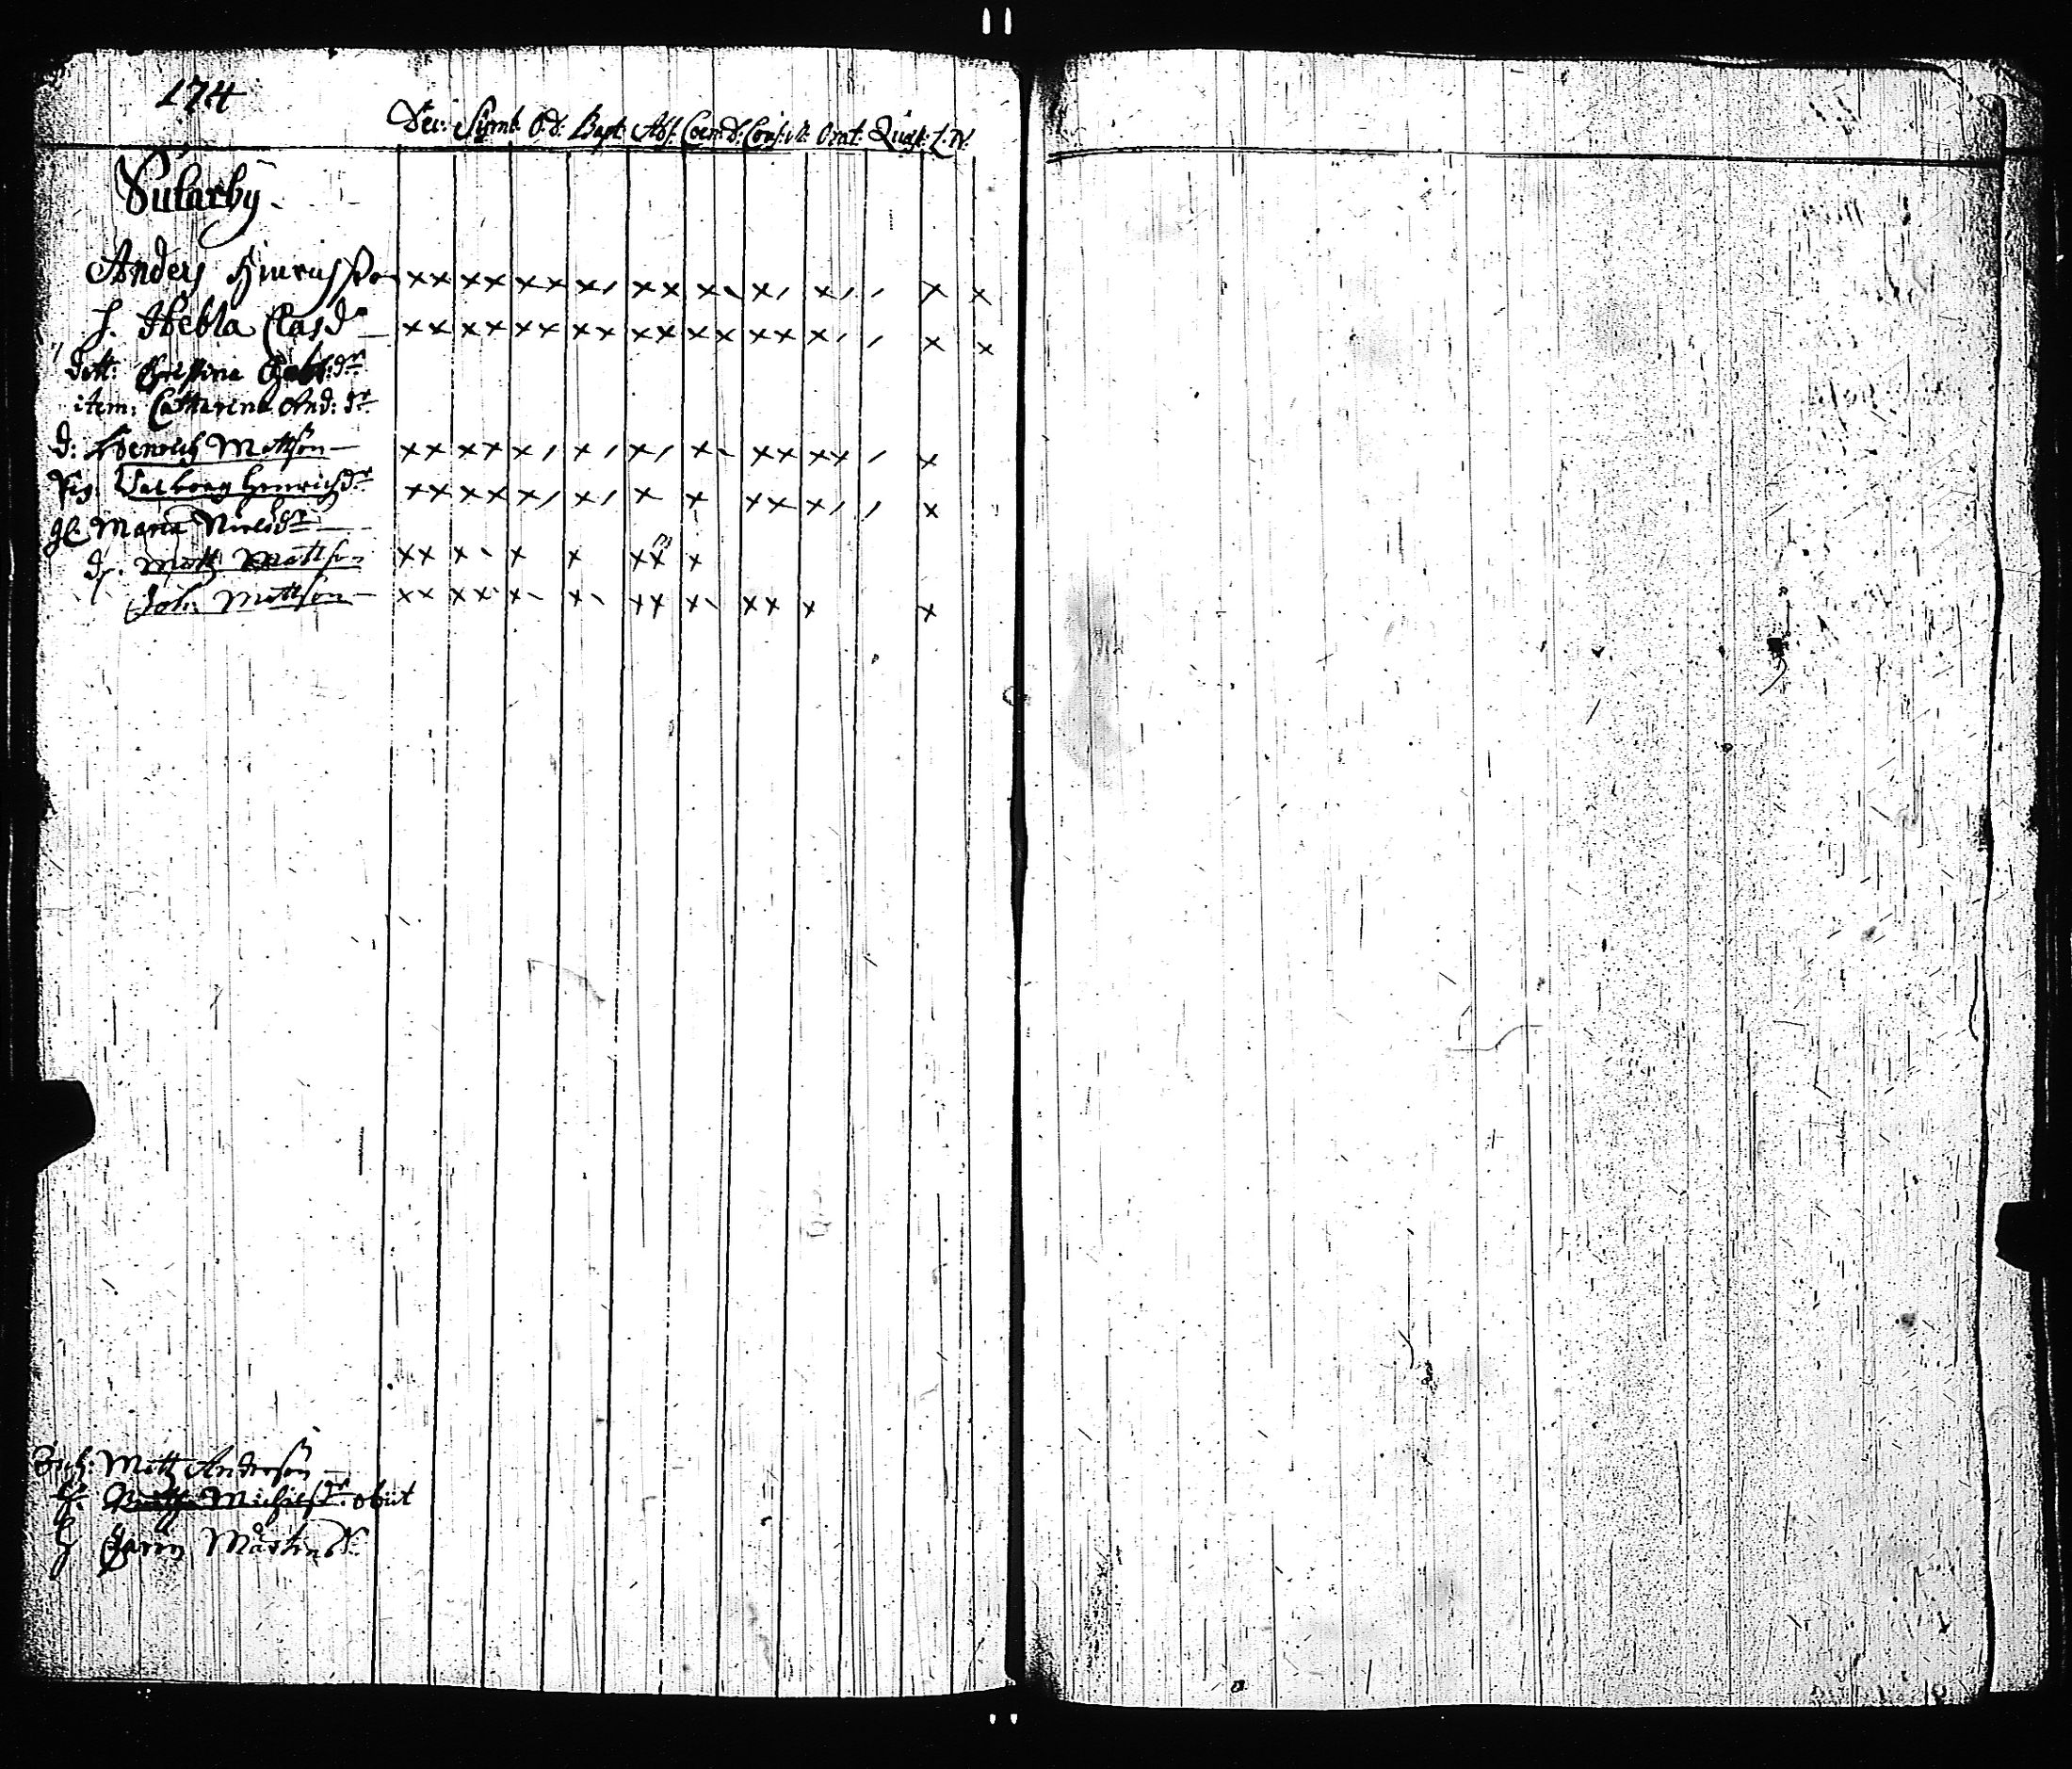 174
Dec: Symb: O.d: Bapt: Abs: Coen.d: Conf: M: Orat: Quæst: L.N.
Sularby
Anders Hinrichsson xx xx xx x, xx x, x, x, , x x
h. Hebla Clasdr xx xx xx xx xx xx xx x, , x x
dott: Christina
item: Catharina And: dr
d: Henrich Mattson xx xx x, x, x, x, xx xx , x
Pig. Valborg Henrichsdr xx xx x, x, x x xx x, , x
gl. Maria Nielsdr
dr. Matz Mattson xx x, x x xx x
Joh. Mattson xx xx x, x, xx x, xx x x
Matz Anderson
h. Michelsdr obiit
h Carin Mårtensdr